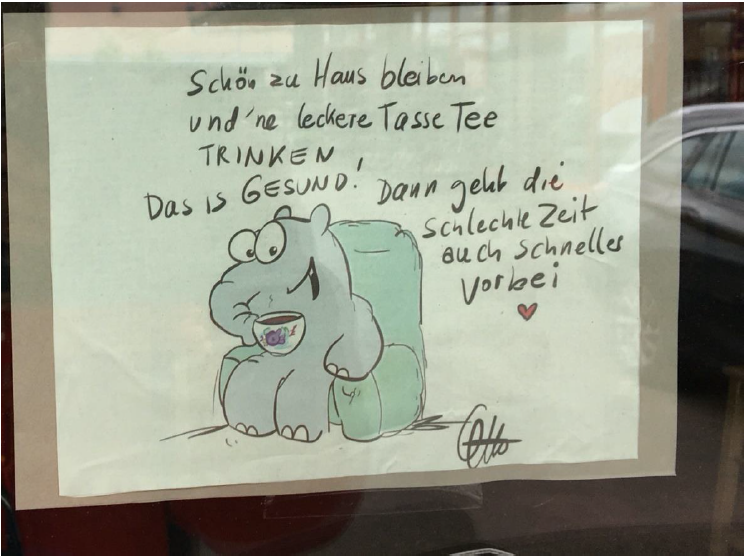 Schön zu Haus bleiben
und 'ne leckere Tasse Tee
TRINKEN!
Das is GESUND! Dann geht die
schlechte Zeit
auch schneller
vorbei
Otto